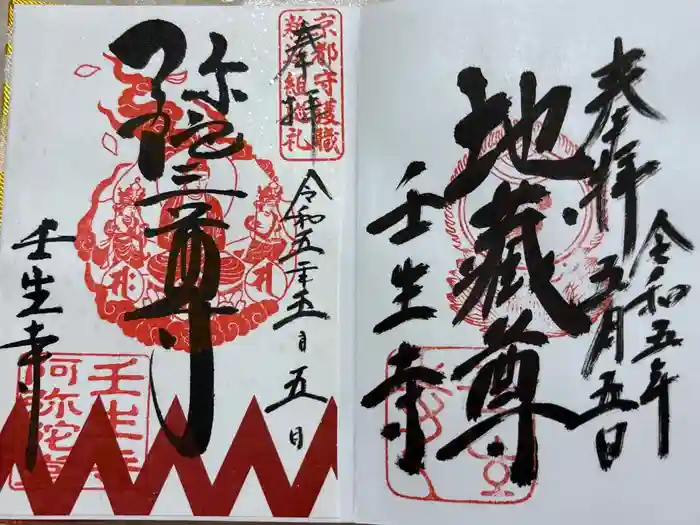 奉拝
令和五年五月五日
地蔵尊
壬生寺
京都守護職
新選組巡礼
奉拝
令和五年五月五日
弥陀三尊
壬生寺
壬生寺
阿弥陀堂